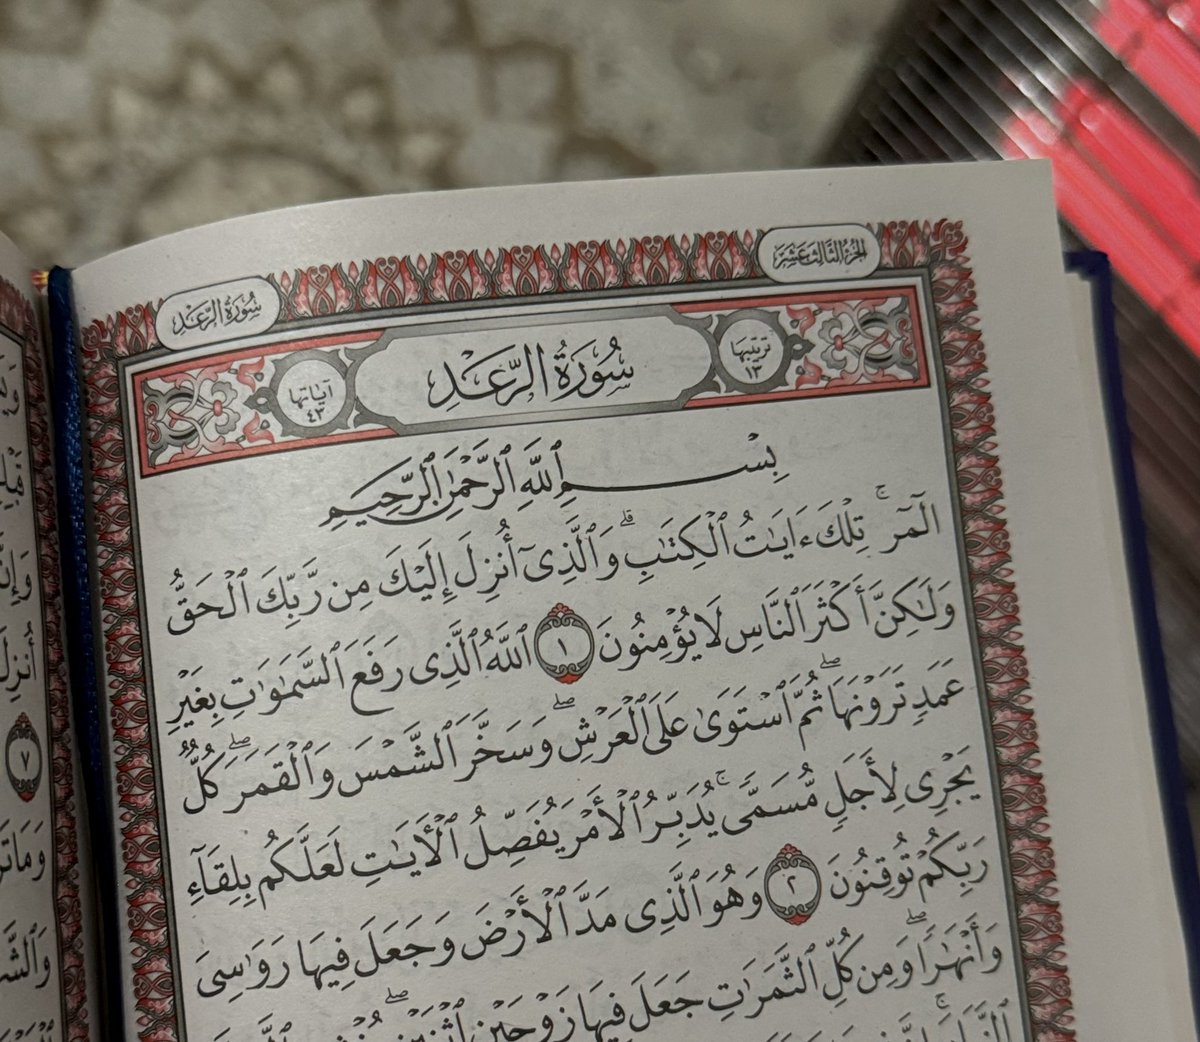 الجزء الثالث عشر
سورة الرعد
ترتيبها ١٣
سُورَةُ الرَّعْدِ
آياتها ٤٣
بِسْمِ ٱللَّهِ ٱلرَّحْمَٰنِ ٱلرَّحِيمِ
الٓمٓرۚ تِلْكَ ءَايَٰتُ ٱلْكِتَٰبِۗ وَٱلَّذِىٓ أُنزِلَ إِلَيْكَ مِن رَّبِّكَ ٱلْحَقُّ
وَلَٰكِنَّ أَكْثَرَ ٱلنَّاسِ لَا يُؤْمِنُونَ ١ ٱللَّهُ ٱلَّذِى رَفَعَ ٱلسَّمَٰوَٰتِ بِغَيْرِ
عَمَدٍ تَرَوْنَهَاۖ ثُمَّ ٱسْتَوَىٰ عَلَى ٱلْعَرْشِۖ وَسَخَّرَ ٱلشَّمْسَ وَٱلْقَمَرَۖ كُلٌّ
يَجْرِى لِأَجَلٍ مُّسَمًّىۚ يُدَبِّرُ ٱلْأَمْرَ يُفَصِّلُ ٱلْءَايَٰتِ لَعَلَّكُم بِلِقَآءِ
رَبِّكُمْ تُوقِنُونَ ٢ وَهُوَ ٱلَّذِى مَدَّ ٱلْأَرْضَ وَجَعَلَ فِيهَا رَوَٰسِىَ
وَأَنْهَٰرًاۖ وَمِن كُلِّ ٱلثَّمَرَٰتِ جَعَلَ فِيهَا زَوْجَيْنِ ٱثْنَيْنِۖ